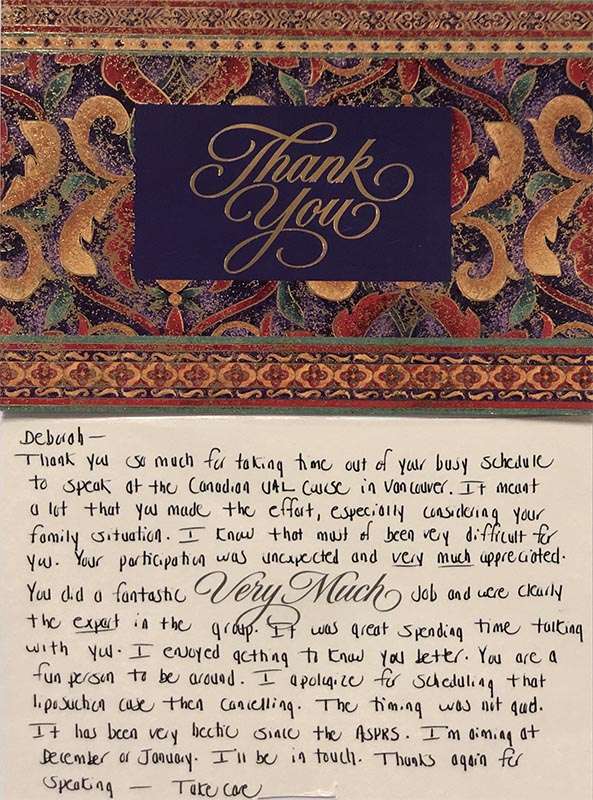 Thank
You
Deborah —
Thank you so much for taking time out of your busy schedule
to speak at the Canadian UAL Course in Vancouver. It meant
a lot that you made the effort, especially considering your
family situation. I know that must of been very difficult for
you. Your participation was unexpected and very much appreciated.
You did a fantastic Very Much Job and were clearly
the expert in the group. It was great spending time talking
with you. I enjoyed getting to know you better. You are a
fun person to be around. I apologize for scheduling that
liposuction case then cancelling. The timing was not good.
It has been very hectic since the ASPRS. I'm aiming at
December or January. I'll be in touch. Thanks again for
speaking — Take care